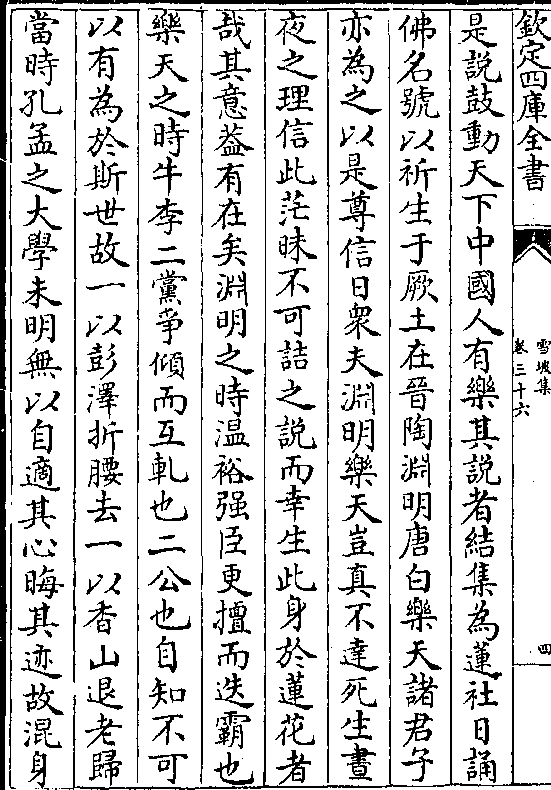 欽定四庫全書
雪坡集
卷三十六
四
是說鼓動天下中國人有樂其說者結集為蓮社日誦
佛名號以祈生于厥土在晉陶淵明唐白樂天諸君子
亦為之以是尊信日衆夫淵明樂天豈真不達死生晝
夜之理信此茫昧不可詰之說而幸生此身於蓮花者
哉其意葢有在矣淵明之時温裕强臣更擅而迭霸也
樂天之時牛李二黨爭傾而互軋也二公也自知不可
以有為於斯世故一以彭澤折腰去一以香山退老歸
當時孔孟之大學未明無以自適其心晦其迹故混身